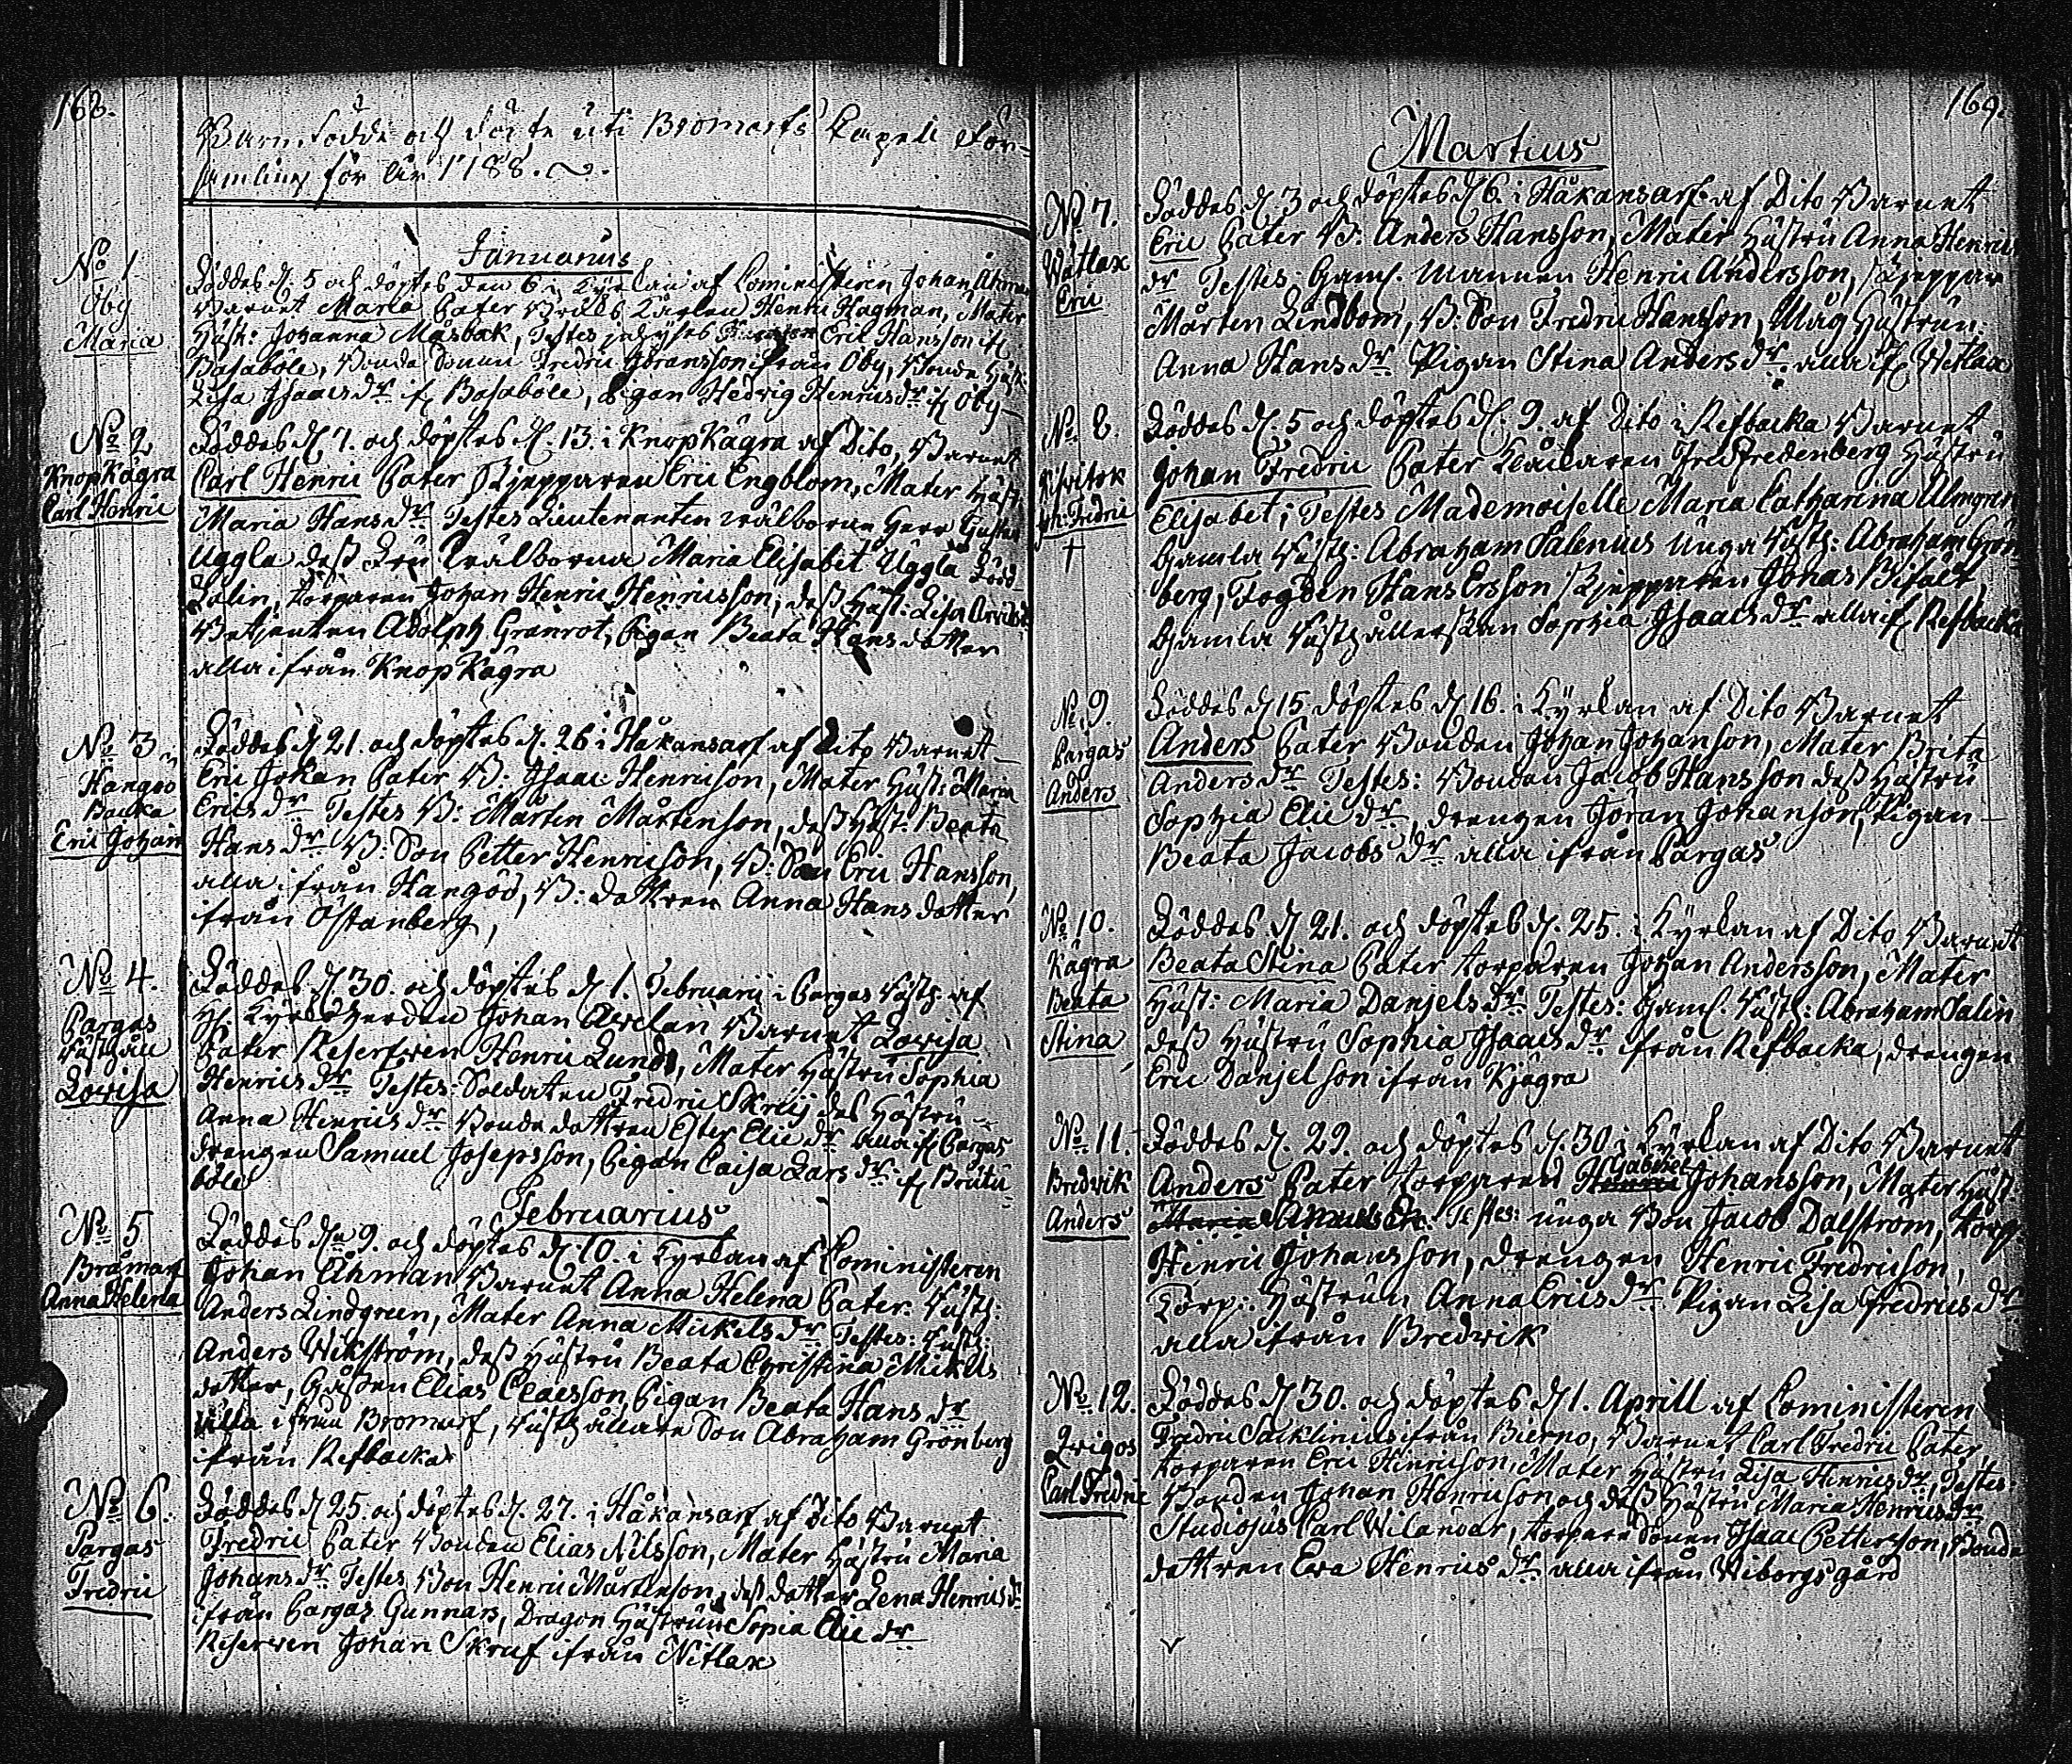 168.
Barn Födde och döpte uti Bromarfs Capell För-
samling för År 1788.
Januarius
No 1
Öby
Maria
Föddes d. 5 och döptes den 6 i Kyrkan af Comministeren Johan Åhman
Barnet Maria Pater Henric Hagman, Mater
Hust: Johanna Masbak, Testes Eric Hansson if
Basaböle, Bonde Sonen Fredric Göransson ifrån Öby, Bonde Hust:
Lisa Isaacs dr if Basaböle, Pigan Hedvig Henrics dr if Öby
No 2
Knopkägra
Carl Henric
Föddes d. 7. och döptes d. 13. i Knopkägra af Dito, Barnet
Carl Henric Pater Skjepparen Eric Engblom, Mater Hust:
Maria Hans dr Testes Lieutenanten wälborne Herr Gustav
Uggla dess Fru Wälborna Maria Elisabet Uggla Född
torparen Johan Henric Henricsson, dess Hust: Lisa
Betjenten Adolph Granrot, Pigan Beata Hans dotter
alla ifrån Knopkägra
No 3
Hangö
Backa
Eric Johan
Föddes d. 21. och döptes d. 26 i Håkansarf af Dito Barnet
Eric Johan Pater B: Isaac Henricson, Mater Hust: Maria
Erics dr Testes B: Mårten Mårtenson, dess Hust: Beata
Hans dr B: Son Petter Henricson, B: Son Eric Hansson,
alla ifrån Hangöö, B: dottren Anna Hans dotter
ifrån Östanberg,
No 4.
Pargas
Lovisa
Föddes d. 30. och döptes d. 1. Februarii i Pargas af
Hr Kyrkoherden Johan Barnet Lovisa
Pater Reserfven Henric Lund, Mater Hustru Sophia
Henrics dr Testes: Soldaten Fredric Skruf des Hustru
Anna Henrics dr Bonde dottren Ester Elie dr alla if Pargas
drengen Samuel Josepsson, Pigan Caisa Lars dr if Brutu-
böle
Februarius
No 5
Bråmarf
Anna Helena
Föddes den 9. och döptes d. 10. i Kyrkan af Comministeren
Johan Åhman Barnet Anna Helena Pater:
Anders Lindgreen, Mater Anna Mickels dr Testes:
Anders Wikström, dess Hustru Beata Christina Mickels
dotter, Elias Claesson, Pigan Beata Hans dr
alla ifrån Bromarf, Son Abraham Grönberg
ifrån Refbacka
No 6.
Pargas
Fredric
Föddes d. 25. och döptes d. 27. i Håkansarf af Dito Barnet
Fredric Pater Bonden Elias Nilsson, Mater Hustru Maria
Johans dr Testes Bon Henric Mårtenson, des dotter Lena Henrics dr
ifrån Pargas Gunnars, Dragon Hustrun Sopia Elie dr
Reserven Johan Skruf ifrån Nitlax
169.
Martius
No 7.
Wätlax
Eric
Föddes d. 3 och döptes d. 6. i Håkansarf af Dito Barnet
Eric Pater B: Anders Hansson, Mater Hustru Anna Henrics
dr Testes: Gaml. Mannen Henric Andersson, Skjeppar
Mårten Lindbom, B: Son Fredric Hansson, Måg Hustrun
Anna Hans dr Pigan Stina Anders dr alla if Wetlax
No 8.
Joh: Fredric
†
Föddes d. 5 och döptes d. 9. af Dito i Refbacka Barnet
Johan Fredric Pater Fredenberg Hustru
Elisabet; Testes Mademoiselle Maria Catharina Almgren
Gamla Abraham Salenius Unga Abraham Grön
berg, Fogden Hans Ersson Skjepparen Jonas
Gamla Sophia Isaacs dr alla if Refbacka
No 9.
Pargas
Anders
Föddes d. 15 döptes d. 16. i Kyrkan af Dito Barnet
Anders Pater Bonden Johan Johanson, Mater Brita
Anders dr Testes: Bonden Jacob Hansson dess Hustru
Sophia Elie dr, drengen Jöran Johanson, Pigan
Beata Jacobs dr alla ifrån Pargas
No 10.
Kägra
Beata
Stina
Föddes d. 21. och döptes d. 25. i Kyrkan af Dito Barnet
Beata Stina Pater torparen Johan Andersson, Mater
Hust: Maria Danjels dr Testes: Gaml. Abraham Salin
dess Hustru Sophia Isaacs dr ifrån Refbacka, drengen
Eric Danjelson ifrån Kjägra
No 11.
Bredvik
Anders
Föddes d. 29. och döptes d. 30 i Kyrkan af Dito Barnet
Gabriel
Anders Pater torparen Henric Johansson, Mater Hust:
Testes: unga Bon Jacob Dalström, torp:
Henric Johansson, drengen Henric Fredricson,
Torp: Hustrun Anna Erics dr Pigan Lisa Fredrics dr
alla ifrån Bredvik
No 12.
Carl Fredric
Föddes d. 30. och döptes d. 1. Aprill af Comministeren
Fredric Sacklinius ifrån Bierno, Barnet Carl Fredric Pater
torparen Eric Hinricson, Mater Hustru Lisa Hinrics dr, Testes
Bonden Johan Henricson och dess Hustru Maria Henrics dr
Studiosus Carl Wilander, torpare Sonen Isaac Pettersson, Bonde
dottren Eva Henrics dr alla ifrån Wiborgs gård